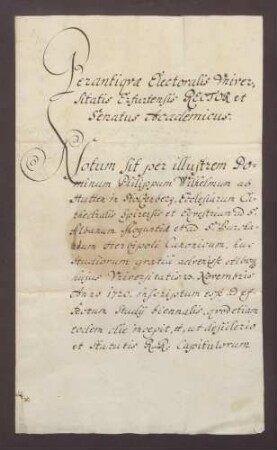 Perantiquæ Electoralis Vniver,
sitatis Erfurtensis RECTOR et
Senatus Academicus.
Notum sit per illustrem Do,
minum Philippum Wilhelmum ab
Hutten in Stolzenberg, Ecclesiarum Ca,
thedralis Spirensis et Equestrium ad S.
Albanum Moguntiæ et ad S. Burcar,
dum Herbipoli Canonicum, huc
Studiorum gratiâ advenisse Albog
hujus Vniversitatis 20. Novembris
Anno 1720. inscriptum esse ad ef,
fectum Studij biennalis, quod etiam
eodem die incepit, et, ut desiderio
et Statutis R.R. Capitulorum